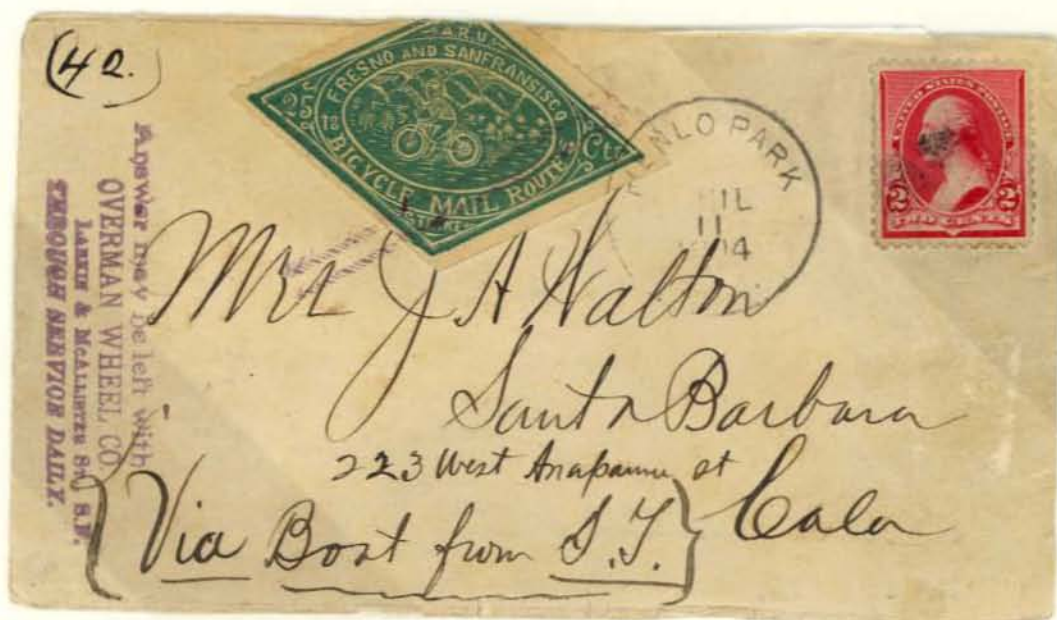 (42.)
A.R.U.
FRESNO AND SANFRANSISCO
25
Cts
BICYCLE MAIL ROUTE
MENLO PARK
11
UNITED STATES POSTAGE
2 2
TWO CENTS
Answer may be left with
OVERMAN WHEEL CO.
LARKIN & MCALLISTER STS S.F.
THROUGH SERVICE DAILY.
Mrs J A Walton
Santa Barbara
223 West Anapamu st
Cala
{Via Boat from S.F.}